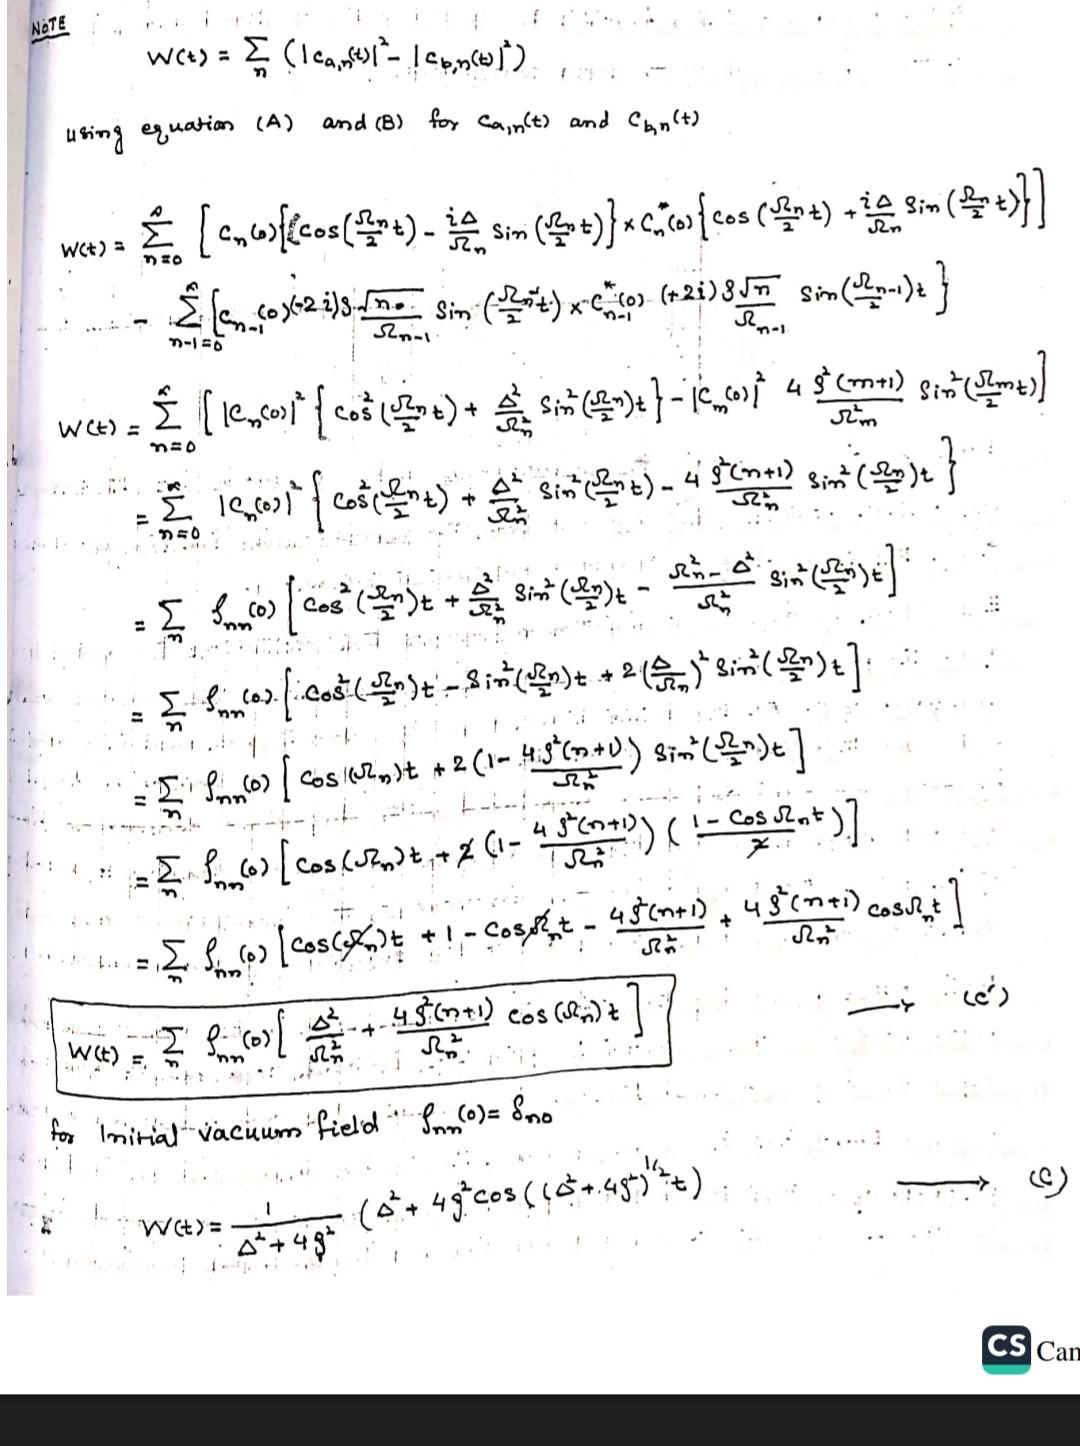 NOTE
W(t) = Σ_n (|c_{a,n}(t)|² - |c_{b,n}(t)|²)
using equation (A) and (B) for c_{a,n}(t) and c_{b,n}(t)
W(t) = Σ_{n=0} [ c_n(0) {(cos(Ω_n/2 t) - iΔ/Ω_n sin(Ω_n/2 t)} × c_n^*(0) {cos(Ω_n/2 t) + iΔ/Ω_n sin(Ω_n/2 t)}]
- Σ_{n-1=0} [c_{n-1}(0)(-2i)g√n/Ω_{n-1} sin(Ω_{n-1}/2 t) × c_{n-1}^*(0) (+2i)g√n/Ω_{n-1} sin(Ω_{n-1}/2)t }
W(t) = Σ_{n=0} [ |c_n(0)|² { cos²(Ω_n/2 t) + Δ²/Ω_n² sin²(Ω_n/2)t } - |c_m(0)|² 4g²(m+1)/Ω_m² sin²(Ω_m/2 t)]
= Σ_{n=0} |c_n(0)|² { cos²(Ω_n/2 t) + Δ²/Ω_n² sin²(Ω_n/2 t) - 4g²(n+1)/Ω_n² sin²(Ω_n/2)t }
= Σ_n ρ_{nn}(0) [ cos²(Ω_n/2)t + Δ²/Ω_n² sin²(Ω_n/2)t - (Ω_n² - Δ²)/Ω_n² sin²(Ω_n/2)t ]
= Σ_n ρ_{nn}(0) [ cos²(Ω_n/2)t - sin²(Ω_n/2)t + 2(Δ/Ω_n)² sin²(Ω_n/2)t ]
= Σ_n ρ_{nn}(0) [ cos(Ω_n)t + 2(1 - 4g²(n+1)/Ω_n²) sin²(Ω_n/2)t ]
= Σ_n ρ_{nn}(0) [ cos(Ω_n)t + 2(1 - 4g²(n+1)/Ω_n²)((1 - cosΩ_n t)/2)]
= Σ_n ρ_{nn}(0) [cos(Ω_n)t + 1 - cosΩ_n t - 4g²(n+1)/Ω_n² + 4g²(n+1)/Ω_n² cosΩ_n t ]
W(t) = Σ_n ρ_{nn}(0) [ Δ²/Ω_n² + 4g²(n+1)/Ω_n² cos(Ω_n)t ] → (c')
for Initial vacuum field ρ_{nn}(0) = δ_{n0}
W(t) = 1/(Δ²+4g²) (Δ² + 4g² cos((Δ²+4g²)^{1/2} t) → (C)
CS Cam